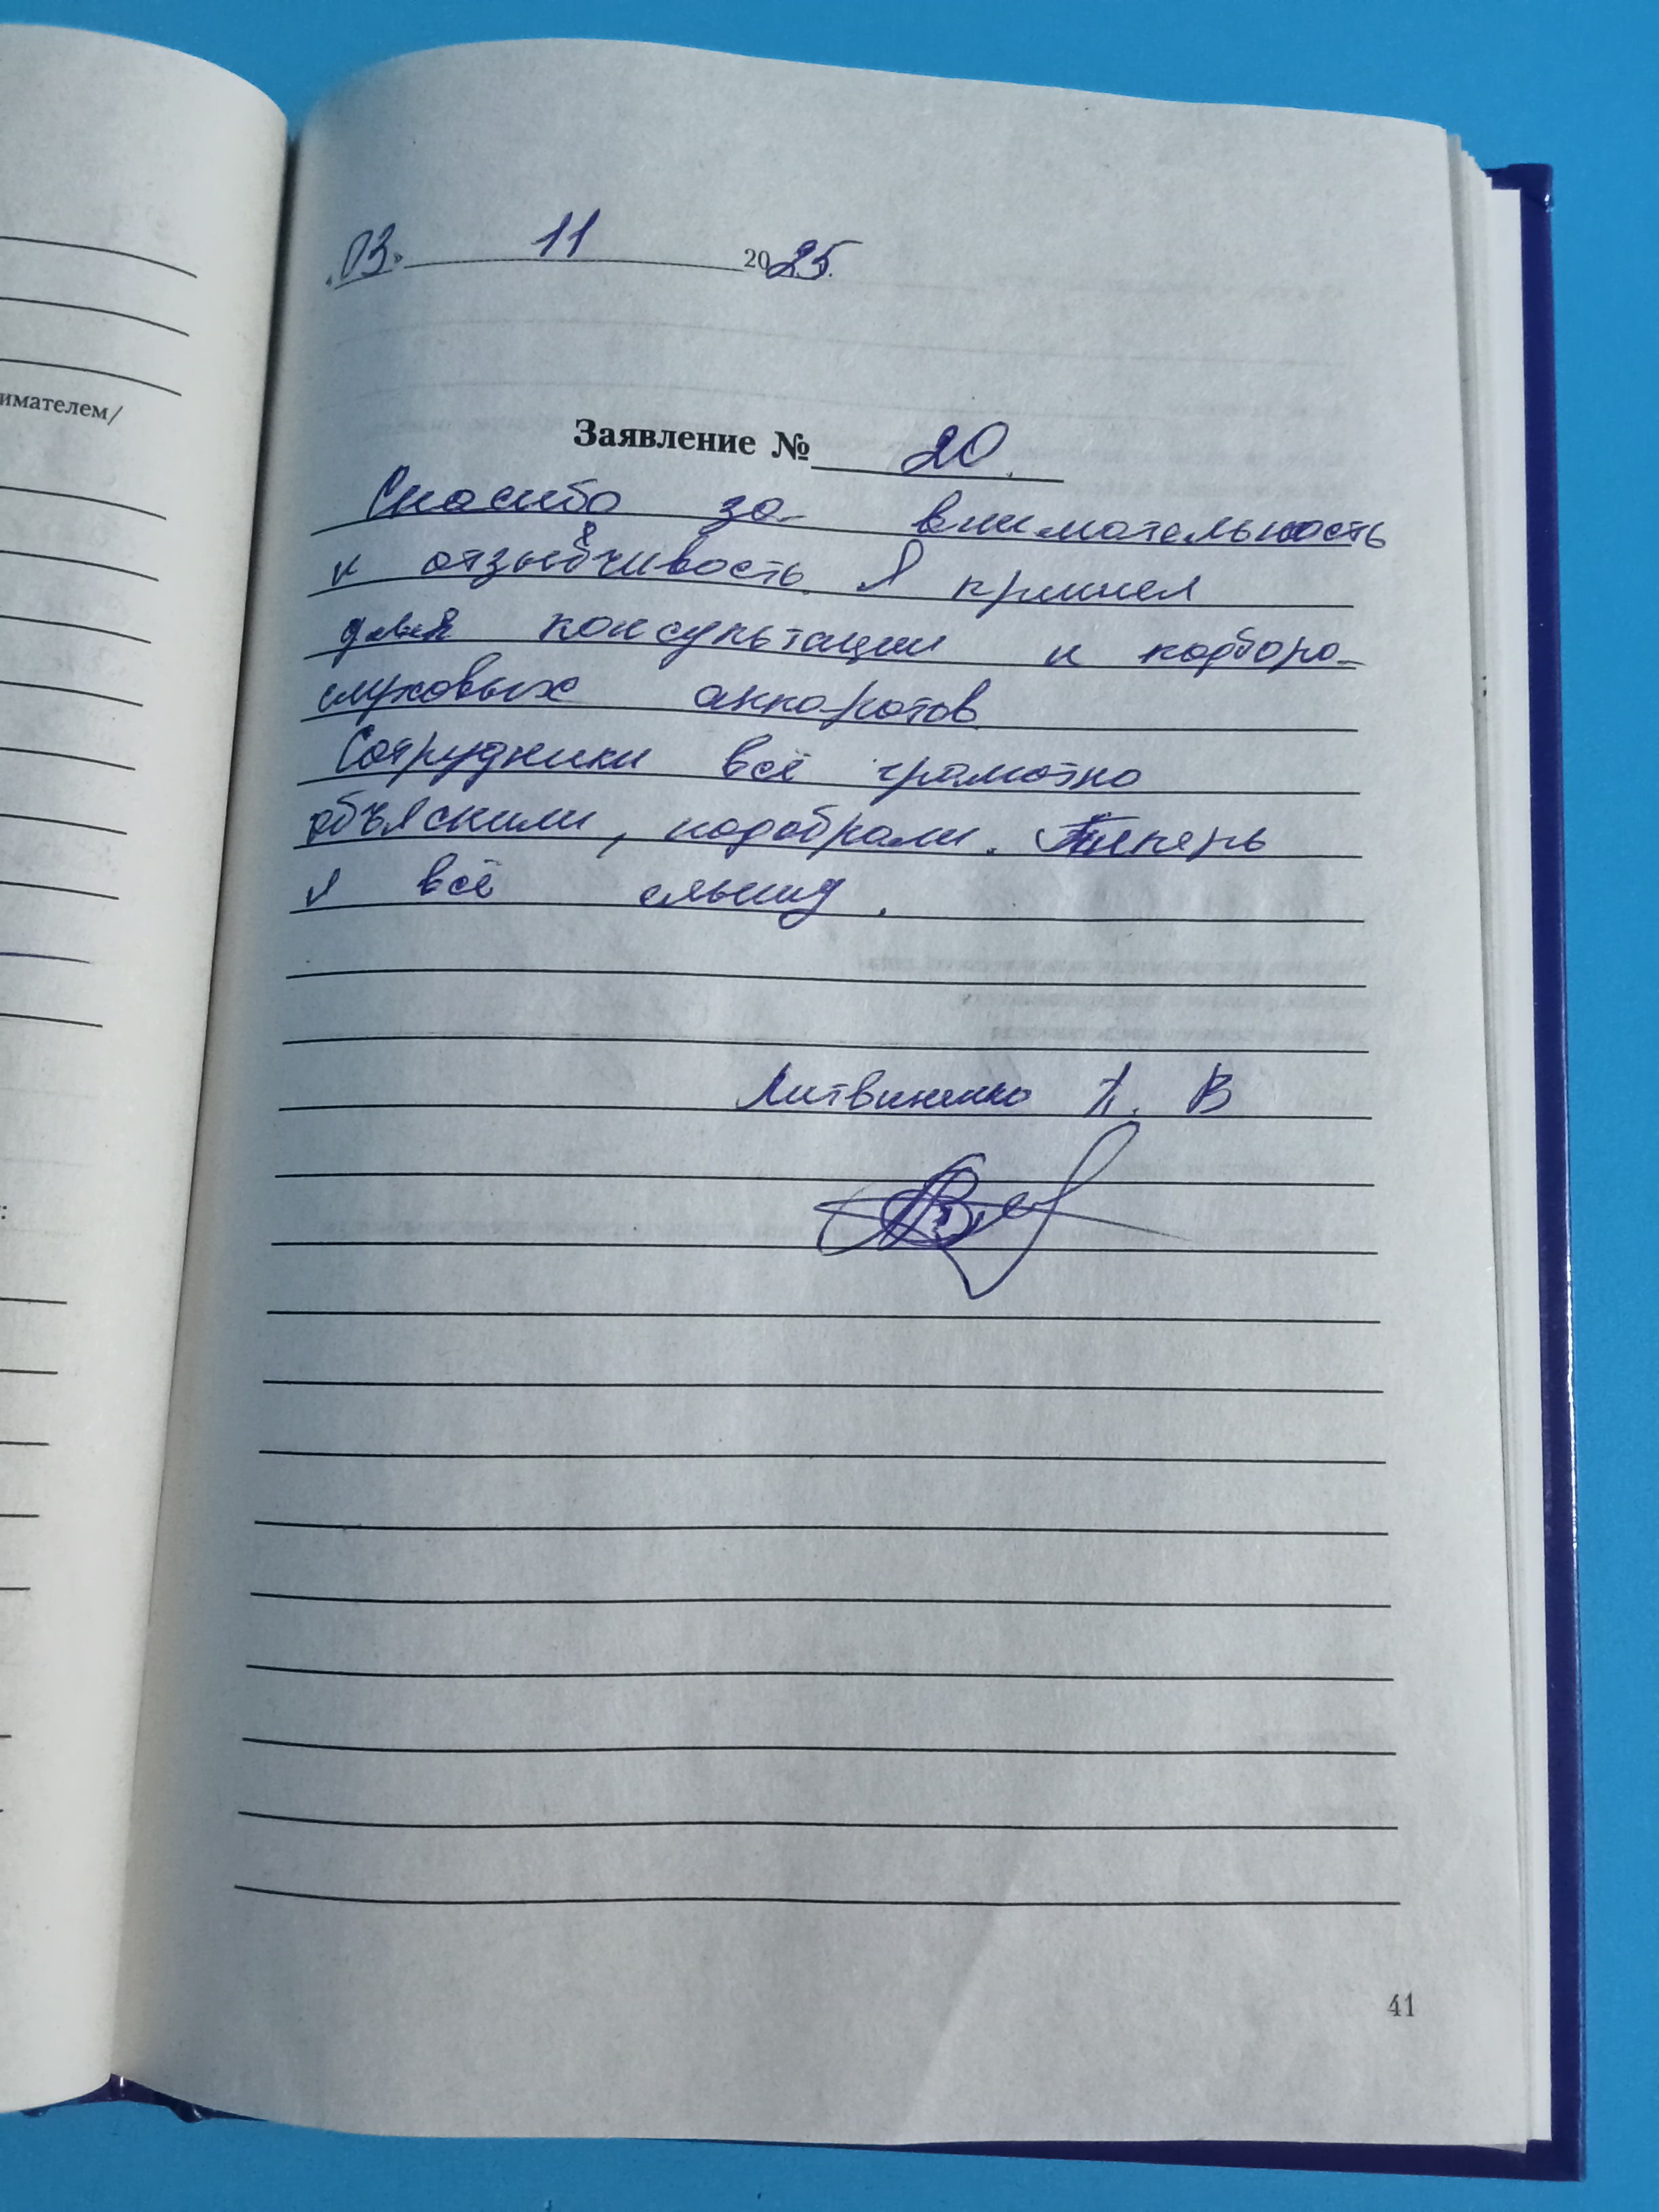 имателем/
«03» 11 2025.
Заявление № 20.
Спасибо за внимательность
и отзывчивость. Я пришел
для консультации и подбора
слуховых аппаратов.
Сотрудники всё грамотно
объяснили, подобрали. Теперь
я всё слышу.
Литвиненко Л. В
41